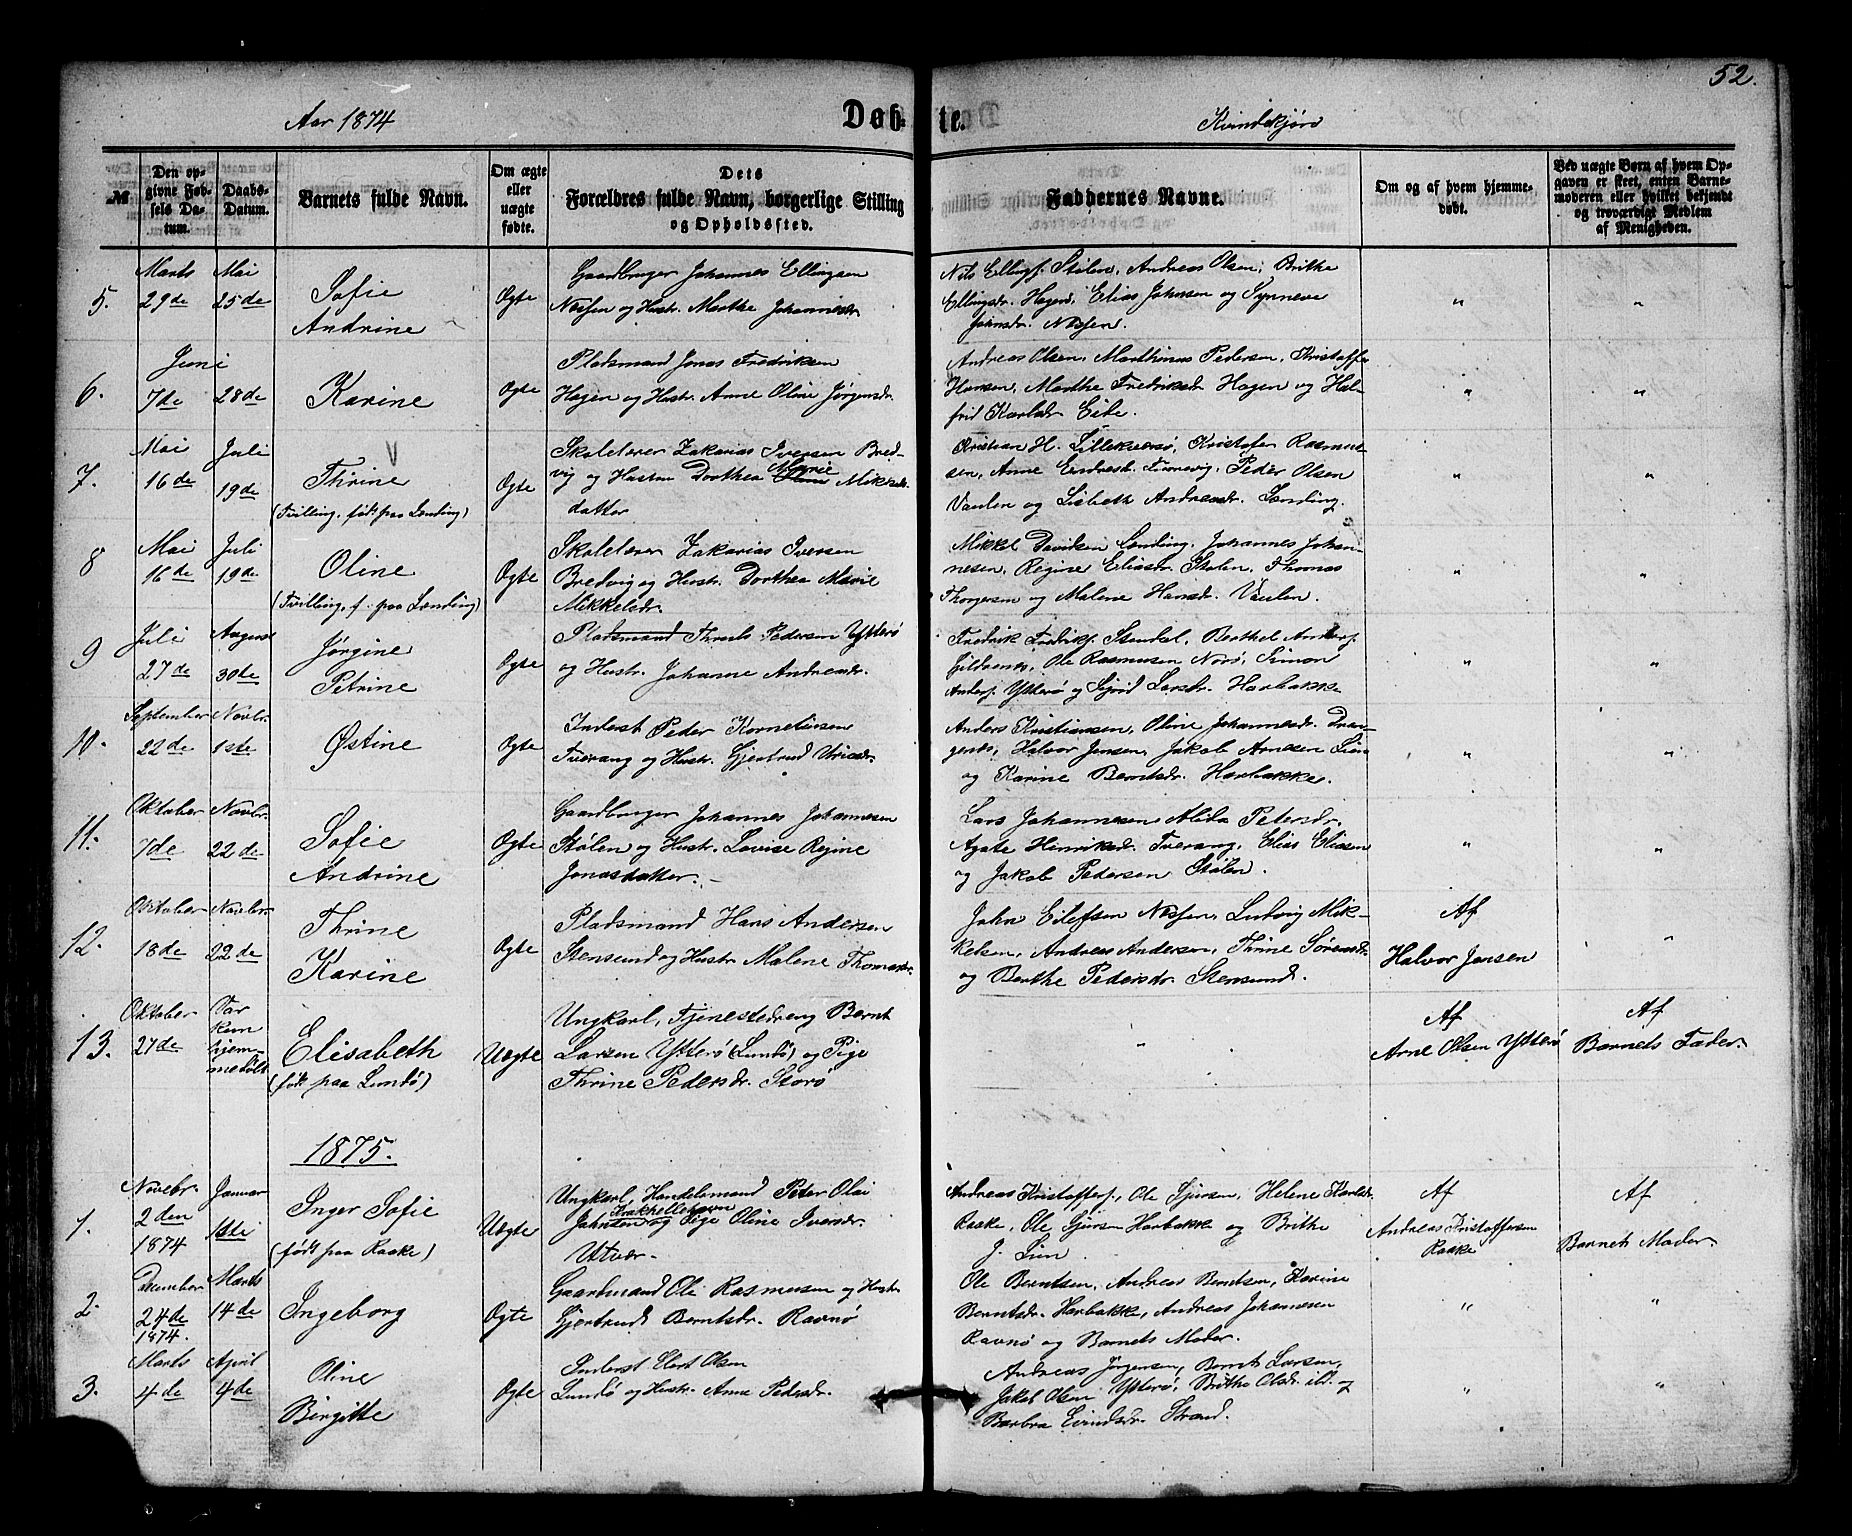 52.
Aar 1874 Døbte. Kvindekjøn
№ Den opgivne Fødsels Datum. Daabs-Datum. Barnets fulde Navn. Om ægte eller uægte fødte. Dets Forældres fulde Navn, borgerlige Stilling og Opholdssted. Faddernes Navne. Om og af hvem hjemmedøbt. Ved uægte Børn af hvem Opgaven er skeet, enten Barnemoderen eller hvilket bekjendt og troværdigt Medlem af Menigheden.
5. Marts 29de Mai 25de
Sofie
Andrine
Øgte
Gaardbruger Johannes Ellingsen
Nessen og Hustr. Marthe Johannesdr.
Nils Ellings. Stølen, Andreas Olsen, Brithe
Ellingsdr. Hagen, Elias Johnsen og Synneve
Johnsdr. Nessen.
" "
6. Juni 7de 28de
Karine
Øgte
Pladsmand Jonas Fredriksen
Hagen og Hustr. Anne Oline Jørgensdr.
Andreas Olsen, Marthinus Pedersen, Kristoffer
Hansen, Marthe Fredriksdr. Hagen og Hal-
frid Karlsdr. Eide.
" "
7. Mai 16de Juli 19de
Thrine
(Tvilling, født paa Lending)
Øgte
Skolelærer Zakarias Iversen Bred-
vig og Hustru Dorthea Marie Mikkels-
datter
Christian H. Lillekversø, Kristofer Rasmus-
sen, Anne Peder Olsen
Vaulen og Lisbeth Andreasdr. Lending.
" "
8 Mai 16de Juli 19de
Oline
(Tvilling, f. paa Lending)
Øgte
Skolelærer Zakarias Iversen
Bredvig og Hustr. Dorthea Marie
Mikkelsdr.
Mikkel Davidsen Lending, Johannes Johan-
nesen, Regine Eliasdr. Stølen, Thomas
Thorgersen og Malene Hansdr. Vaulen.
" "
9 Juli 27de August 30de
Jørgine
Petrine
Øgte
Pladsmand Thruls Pedersen Ytterø
og Hustr. Johanne Andreasdr.
Fredrik Fredriks. Stendal, Berthel Anders.
Gjildrenes, Ole Rasmusen Norø, Simon
Anders. Ytterø og Sigrid Larsdr. Harbakke
" "
10. September 22de Novbr. 1ste
Østine
Øgte
Inderst Peder Korneliusen
Tverang og Hustr. Gjertrud Uriasdr.
Anders Kristiansen, Oline Johannesdr. Dran-
genes, Halvor Jensen, Jakob Arnesen Lien
og Karine Berntsdr. Harbakke.
" "
11. Oktober 7de Novbr. 22de
Sofie
Andrine
Øgte
Gaardbruger Johannes Johannesen
Stølen og Hustr. Lovise Regine
Jonasdatter. –
Lars Johannesen, Alida Petersdr.
Agate Henriksdr. Tverang, Elias Eliasen
og Jakob Pedersen Stølen.
" "
12. Oktober 18de Novbr. 22de
Thrine
Karine
Øgte
Pladsmand Hans Andersen
Stensund og Hustr. Malene Thomasdr.
John Eilefsen Nessen, Ludvig Mik-
kelsen, Andreas Andersen, Thrine Sørensdr.
og Berthe Pedersdr. Stensund.
Af
Halvor Jensen
"
13. Oktober 27de Var kun hjemmedøbt
Elisabeth
(født paa Lundø)
Uøgte
Ungkarl, Tjenestedreng Bernt
Larsen Ytterø (Lundø) og Pige
Thrine Pedersdr. Storø
"
Af
Arne Olsen Ytterø
Af
Barnets Fader.
1875.
1. Novebr. 2den 1874 Januar 1ste
Inger Sofie
(født paa Raake)
Uøgte
Ungkarl, Handelsmand Peter Olai
Johnsen Krakhellehavn og Pige Oline Iversdr.
Utvær.
Andreas Kristoffers., Ole Gjørsen, Helene Karlsdr.
Raake, Ole Gjørsen Harbakke og Brithe
J. Lien
Af
Andreas Kristoffersen
Raake
Af
Barnets Moder.
2. December 24de 1874. Marts 14de
Ingeborg
Øgte
Gaardmand Ole Rasmusen og Hustr.
Gjertrud Berntsdr. Ravnø
Ole Berntsen, Andreas Berntsen, Karine
Berntsdr. Harbakke, Andreas Johannesen
Ravnø og Barnets Moder.
" "
3. Marts 4de April 4de
Oline
Birgitte
Øgte
Inderst Elert Olsen
Lundø og Hustr. Anne Pedersdr.
Andreas Jørgensen, Bernt Larsen,
Jakob Olsen Ytterø, Brithe Olsdr. ibd. og
Barbra Eivindsdr. Strand.
" "